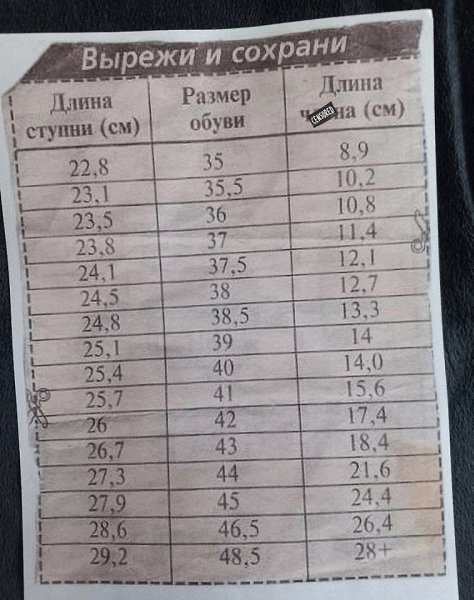 Вырежи и сохрани
Длина ступни (см) Размер обуви Длина (см)
22,8 35 8,9
23,1 35,5 10,2
23,5 36 10,8
23,8 37 11,4
24,1 37,5 12,1
24,5 38 12,7
24,8 38,5 13,3
25,1 39 14
25,4 40 14,0
25,7 41 15,6
26 42 17,4
26,7 43 18,4
27,3 44 21,6
27,9 45 24,4
28,6 46,5 26,4
29,2 48,5 28+
CENSORED